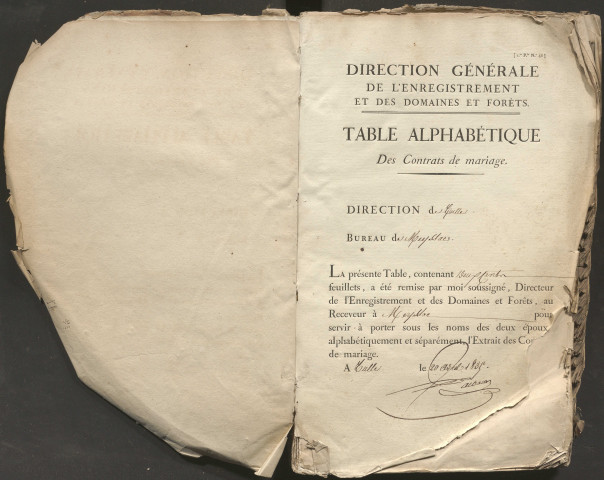 DIRECTION GÉNÉRALE
DE L'ENREGISTREMENT
ET DES DOMAINES ET FORÊTS.
TABLE ALPHABÉTIQUE
Des Contrats de mariage.
DIRECTION de Tulle
BUREAU de Meyssac
LA présente Table, contenant
feuillets, a été remise par moi soussigné, Directeur
de l'Enregistrement et des Domaines et Forêts, au
Receveur à Meyssac pour
servir à porter sous les noms des deux époux,
alphabétiquement et séparément, l'Extrait des Con
de mariage.
A Tulle le